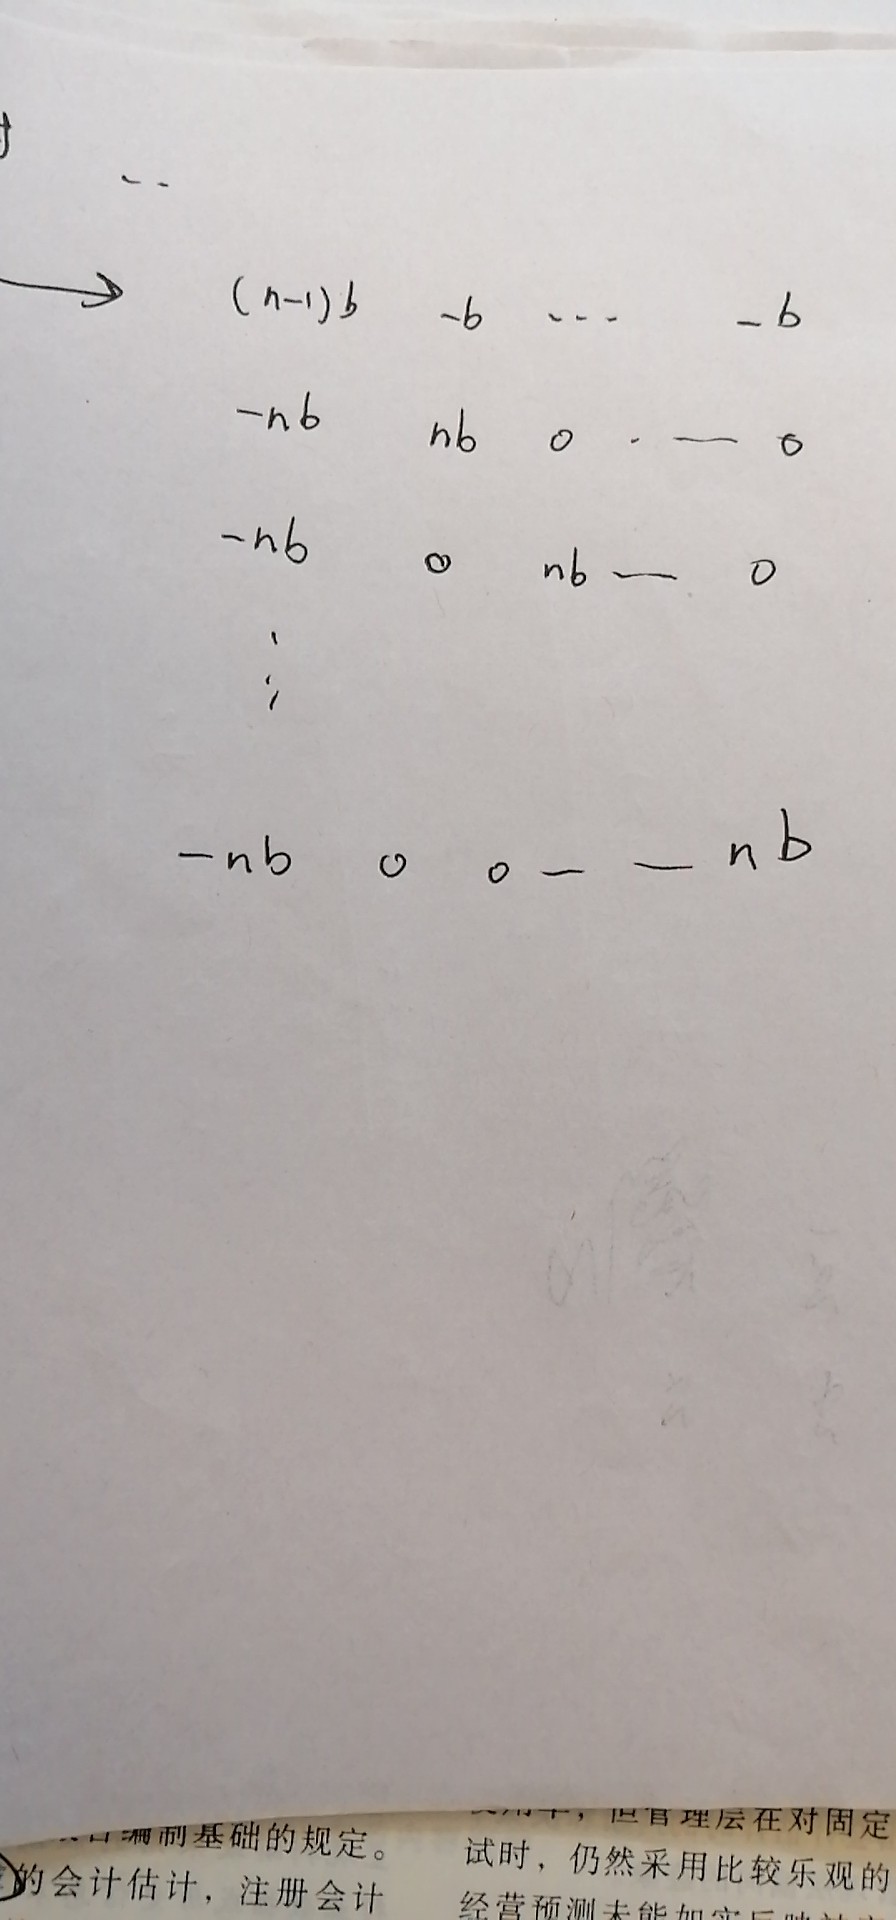 - -
(n-1)b -b --- -b
-nb nb 0 · — 0
-nb 0 nb — 0
⋮
-nb 0 0 — — nb
编制基础的规定。
的会计估计，注册会计
，但管理层在对固定
试时，仍然采用比较乐观的
经营预测未能如实反映